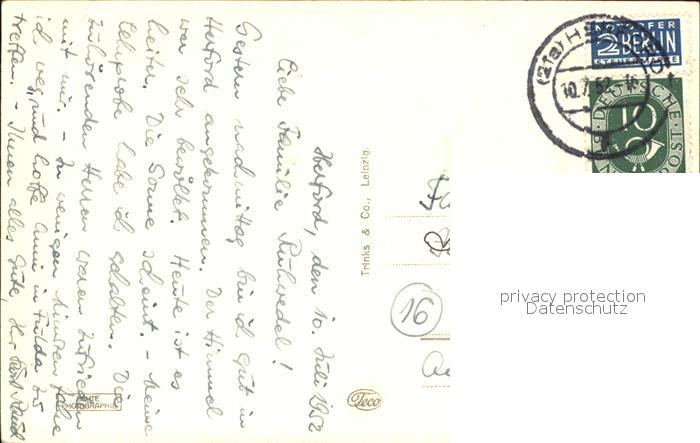 Herford, den 10. Juli 1952
Liebe Familie Ruhwedel!
Gestern nachmittag bin ich gut in
Herford angekommen. Der Himmel
war sehr bewölkt. Heute ist es
heiter. Die Sonne scheint. - Meine
Lehrprobe habe ich gehalten. Die
zuhörenden Herren waren zufrieden
mit mir. - In wenigen Minuten fahre
ich weg und hoffe Anni in Fulda zu
treffen. - Ihnen alles Gute, Ihr
ECHTE
PHOTOGRAPHIE
Trinks & Co., Leipzig.
Teco
16
(21a) HERFORD
10.7.52
NOTOPFER
2 BERLIN
STEUERMARKE
DEUTSCHE
10
POST
privacy protection
Datenschutz